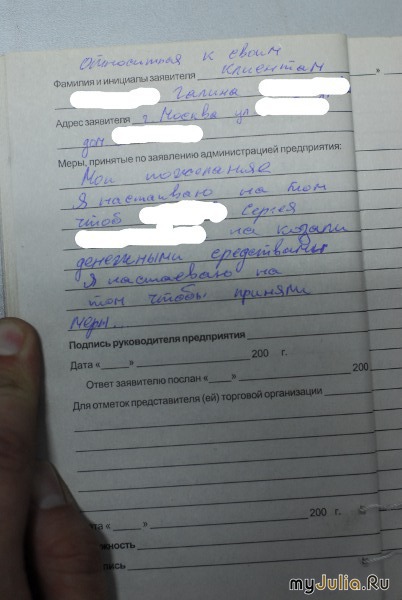 относится к своим
клиентам
Фамилия и инициалы заявителя
Галина
Адрес заявителя г. Москва ул
дом
Меры, принятые по заявлению администрацией предприятия:
Мои пожелания
Я настаиваю на том
чтоб Сергея
на казали
денежными средствами
Я настаеваю на
том чтобы приняли
меры...
Подпись руководителя предприятия
Дата « » 200 г.
Ответ заявителю послан « » 200
Для отметок представителя (ей) торговой организации
ата « » 200 г.
жность
пись
myJulia.Ru